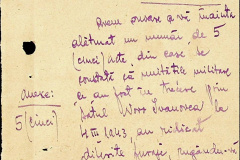 Avem onoare a vă înainta
alăturat un număr de 5
(cinci) acte din care se
constată că unitățile militare
ce au fost în trecere prin
satul Woro Ivanovca la
1943, au ridicat
diferite furaje rugându-vă
Anexe:
5 (cinci)